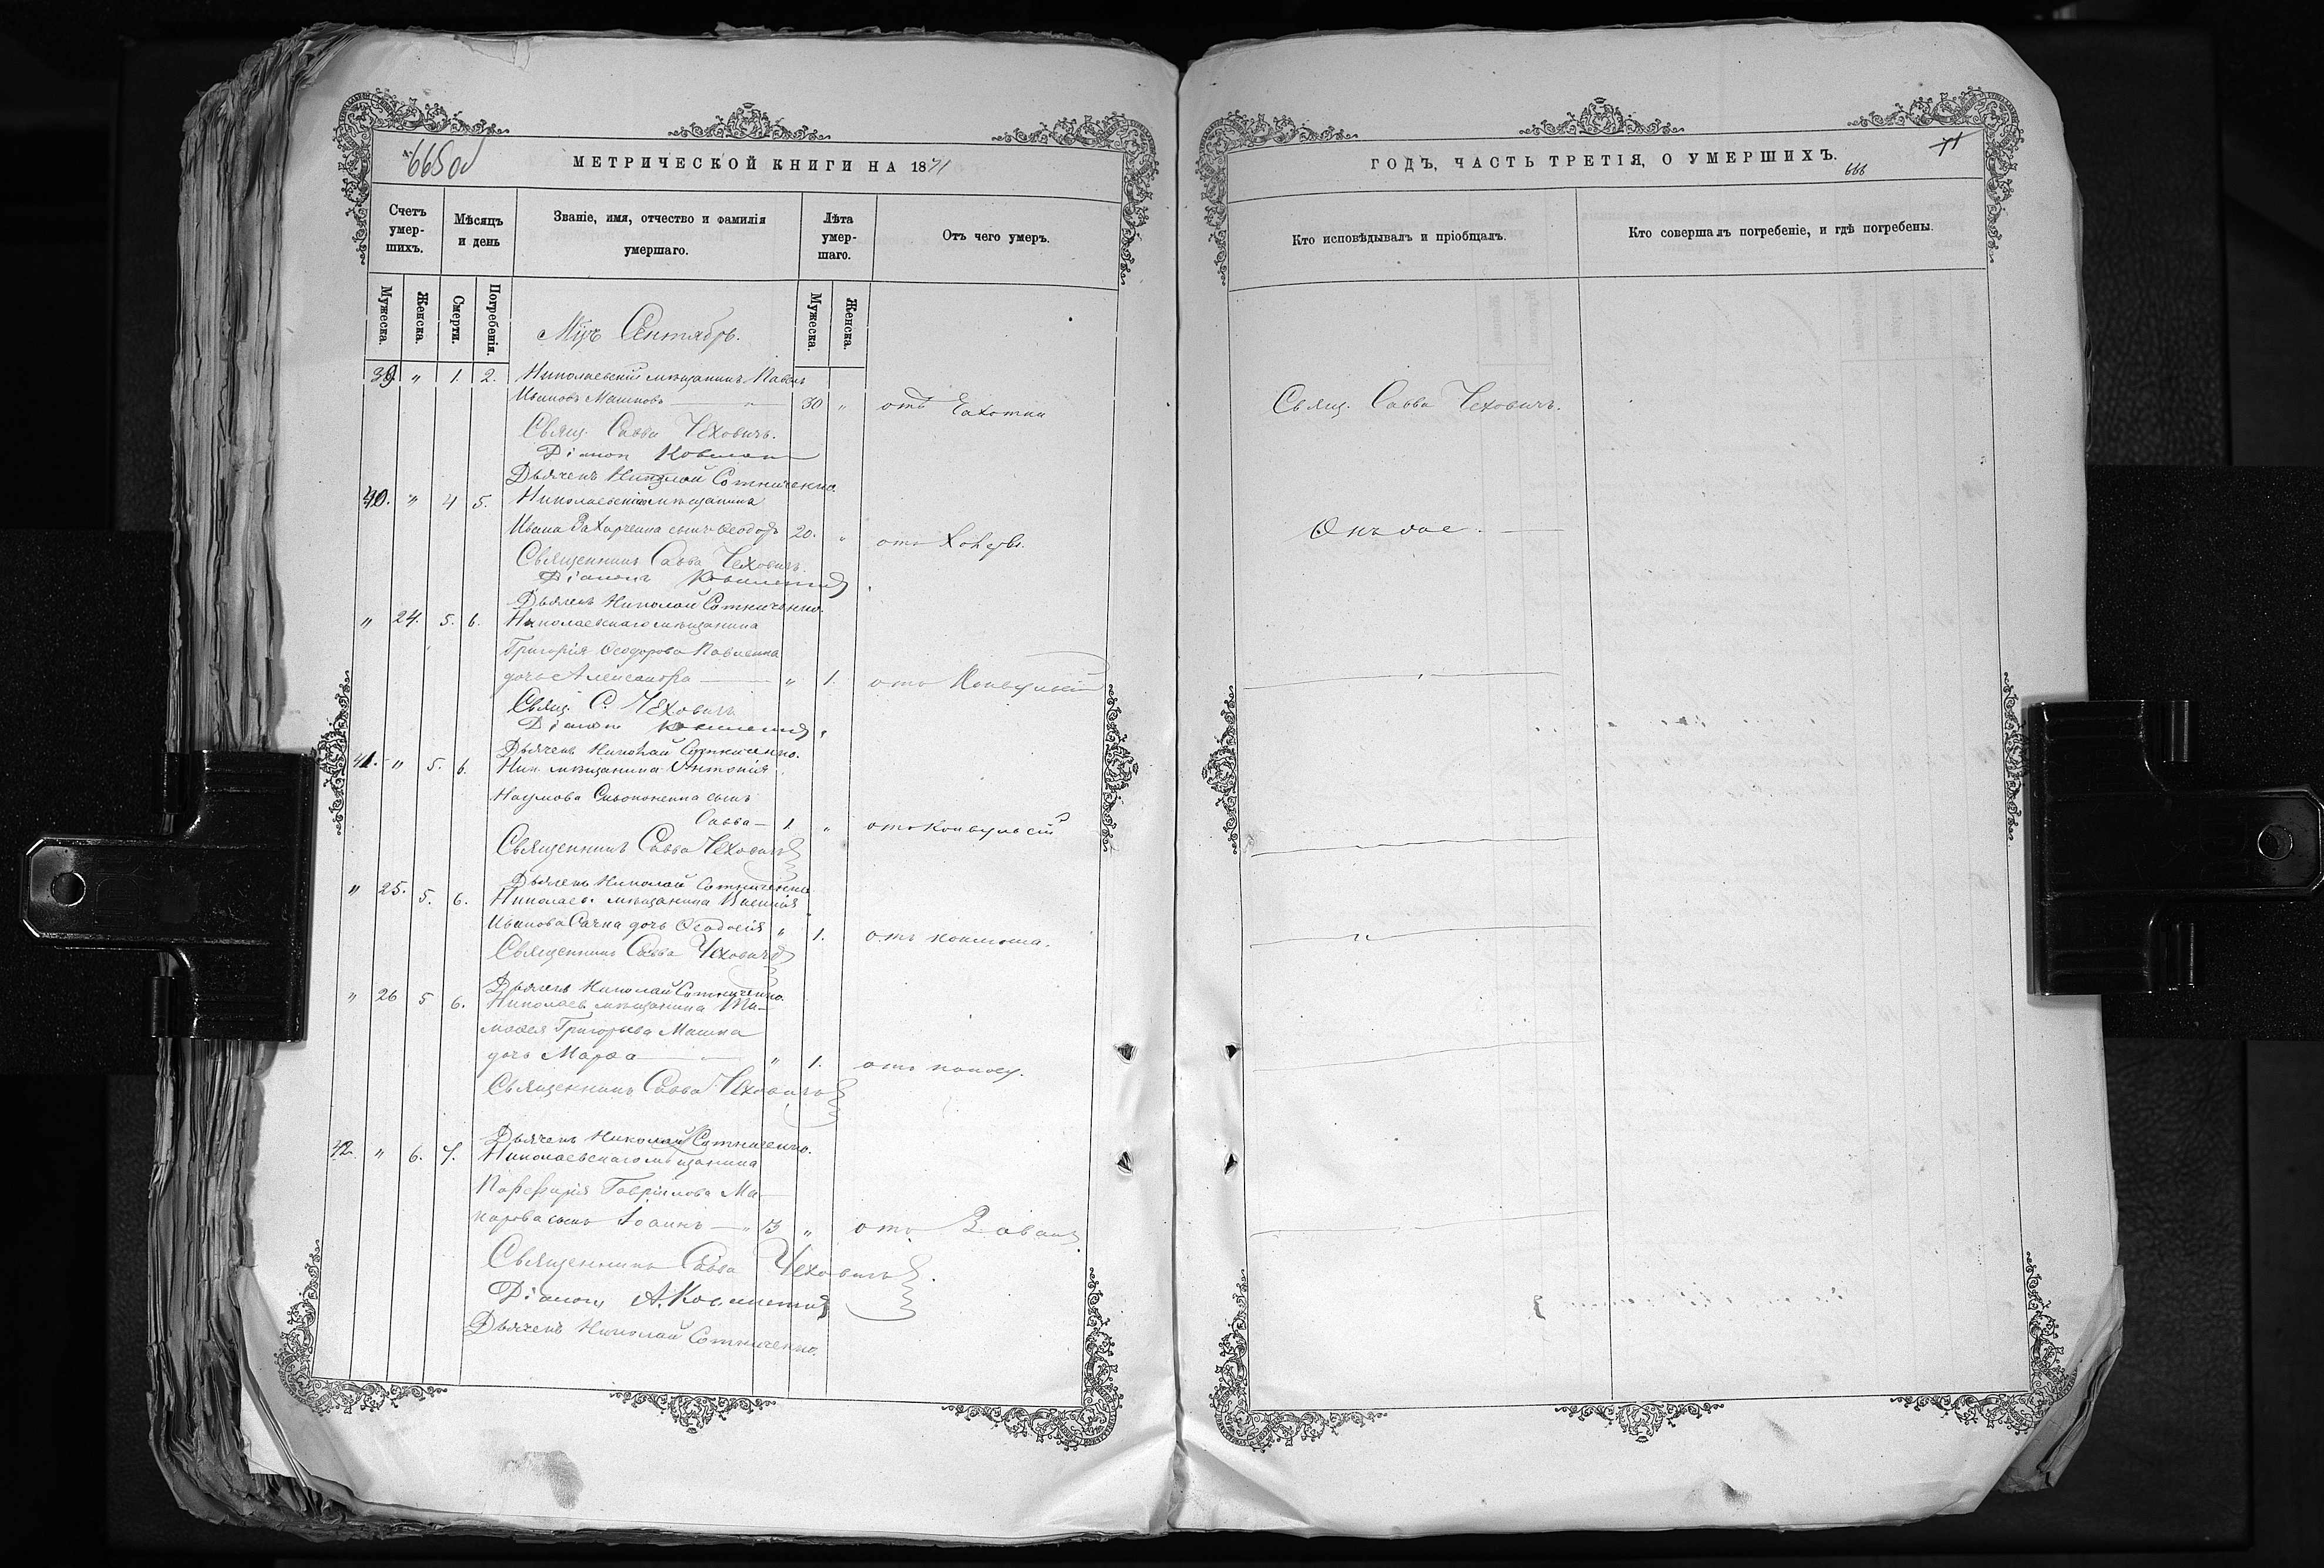 665 об
МЕТРИЧЕСКОЙ КНИГИ НА 1871
Счетъ умер-шихъ.
Мѣсяцъ и день
Званіе, имя, отчество и фамилія умершаго.
Лѣта умер-шаго.
Отъ чего умеръ.
Мужеска.
Женска.
Смерти.
Погребенія.
Мужеска.
Женска.
Мцъ Сентябрь.
39 " 1. 2. Николаевскій мѣщанинъ Павелъ
Ивановъ Машковъ 30 " отъ Чахотки
Свящ. Савва Чеховичъ.
Діаконъ
Дьячекъ Николай Сотниченко.
40. " 4 5. Николаевскій мѣщанина
Ивана Захарченка сынъ Ѳеодоръ 20. " отъ Холеры.
Священникъ Савва Чеховичъ.
Діаконъ
Дьячекъ Николай Сотниченко.
" 24. 5. 6. Николаевскаго мѣщанина
Григорія Ѳеодорова Павленка
дочь Александра " 1. отъ Конвульсій
Свящ. С. Чеховичъ
Діаконъ
Дьячекъ Николай Сотниченко.
41. " 5. 6. Ник. мѣщанина Антонія
Наумова сынъ
Савва 1. " отъ Конвульсій
Священникъ Савва Чеховичъ
Дьячекъ Николай Сотниченко
" 25. 5. 6. Николаев. мѣщанина
Иванова дочь Ѳеодосія " 1. отъ коклюша.
Священникъ Савва Чеховичъ
Дьячекъ Николай Сотниченко.
" 26 5 6. Николаев. мѣщанина Ти-
моѳея Григорьева Машка
дочь Марѳа " 1. отъ
Священникъ Савва Чеховичъ
Дьячекъ Николай Сотниченко.
42. " 6. 7. Николаевскаго мѣщанина
Гавріилова Ма-
карова сынъ Іоаннъ " " отъ
Священникъ Савва Чеховичъ
Діаконъ А.
Дьячекъ Николай Сотниченко.
ГОДЪ, ЧАСТЬ ТРЕТІЯ, О УМЕРШИХЪ.
666
71
Кто исповѣдывалъ и пріобщалъ.
Кто совершалъ погребеніе, и гдѣ погребены.
Свящ. Савва Чеховичъ.
Онъ же.